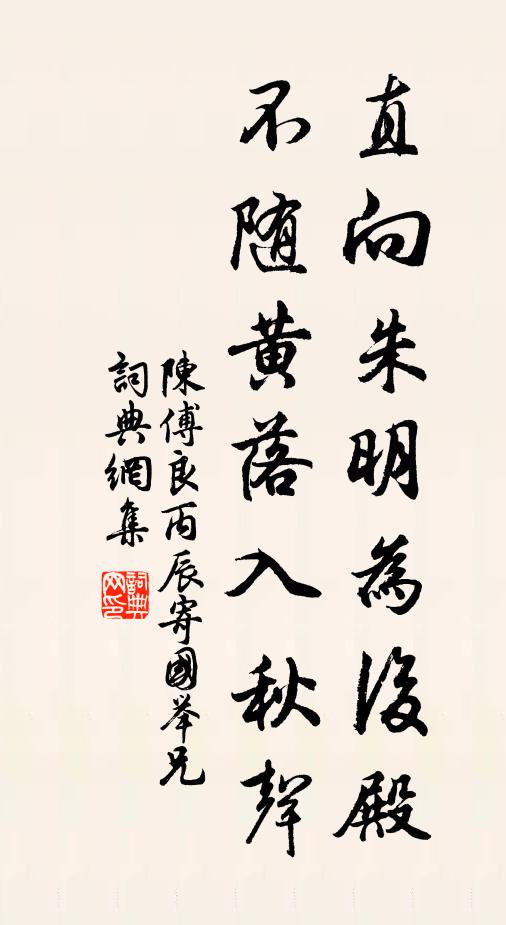 直向朱明為後殿
不随黄落入秋聲
陳傅良丙辰寄國举兄
詞典網集
詞典网印